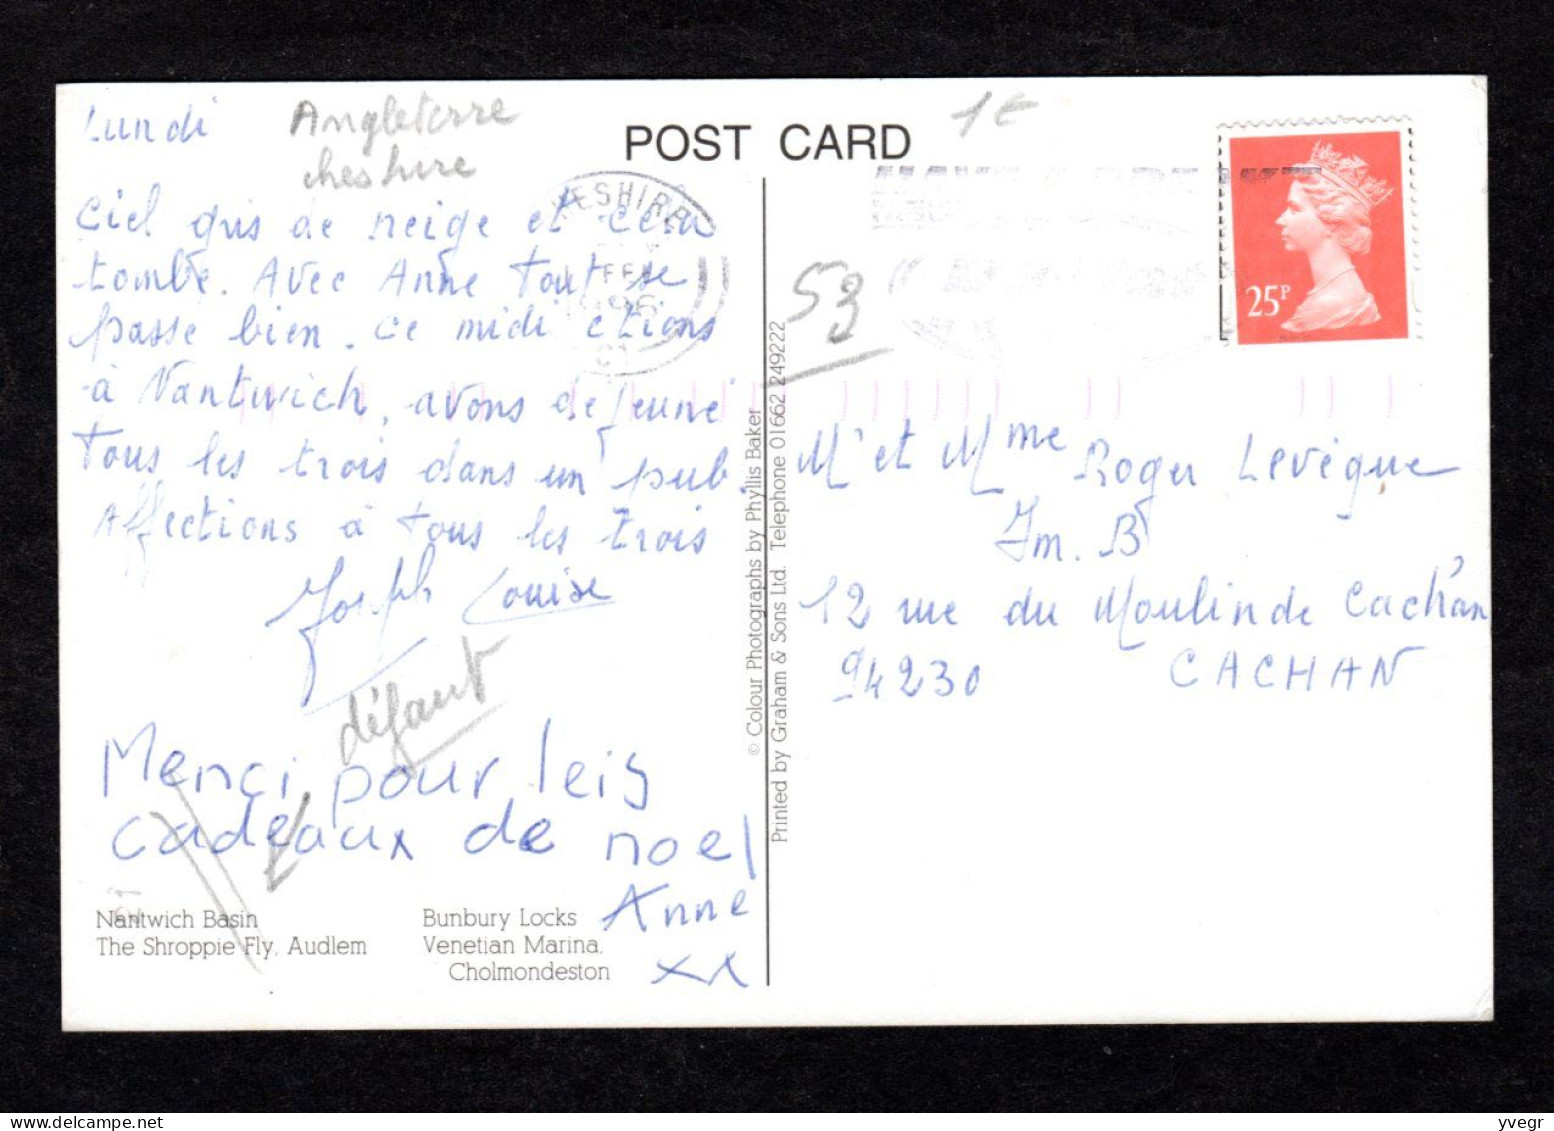 Lundi
Angleterre
cheshire
POST CARD
1€
ciel gris de neige et cela
tombe. Avec Anne tout se
passe bien. ce midi etions
à Nantwich, avons dejeuné
tous les trois dans un pub.
Affections à tous les trois
Joseph Louise
défaut
Merci pour leis
cadeaux de noel
Anne
xx
Nantwich Basin
The Shroppie Fly, Audlem
Bunbury Locks
Venetian Marina,
Cholmondeston
HESHIRE
FE
1996
C1
© Colour Photographs by Phyllis Baker
Printed by Graham & Sons Ltd. Telephone 01662 249222
53
25P
Mr et Mme Roger Levèque
Im. B
12 rue du Moulin de Cachan
94230 CACHAN
delcampe.net
yvegr